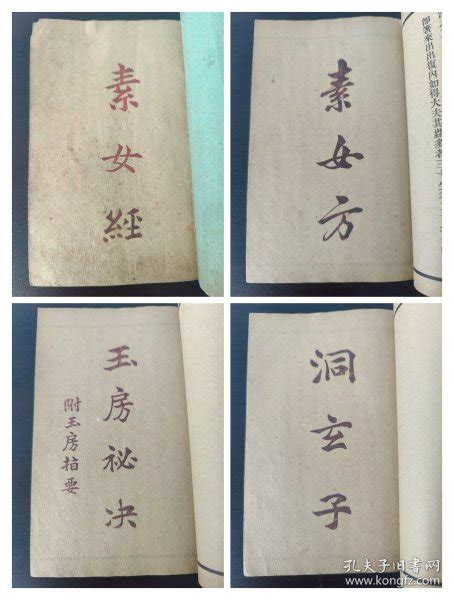 素女經
素女方
即著來出出復內如得大夫其
玉房祕决
附玉房指要
洞玄子
孔夫子旧书网
www.kongfz.com